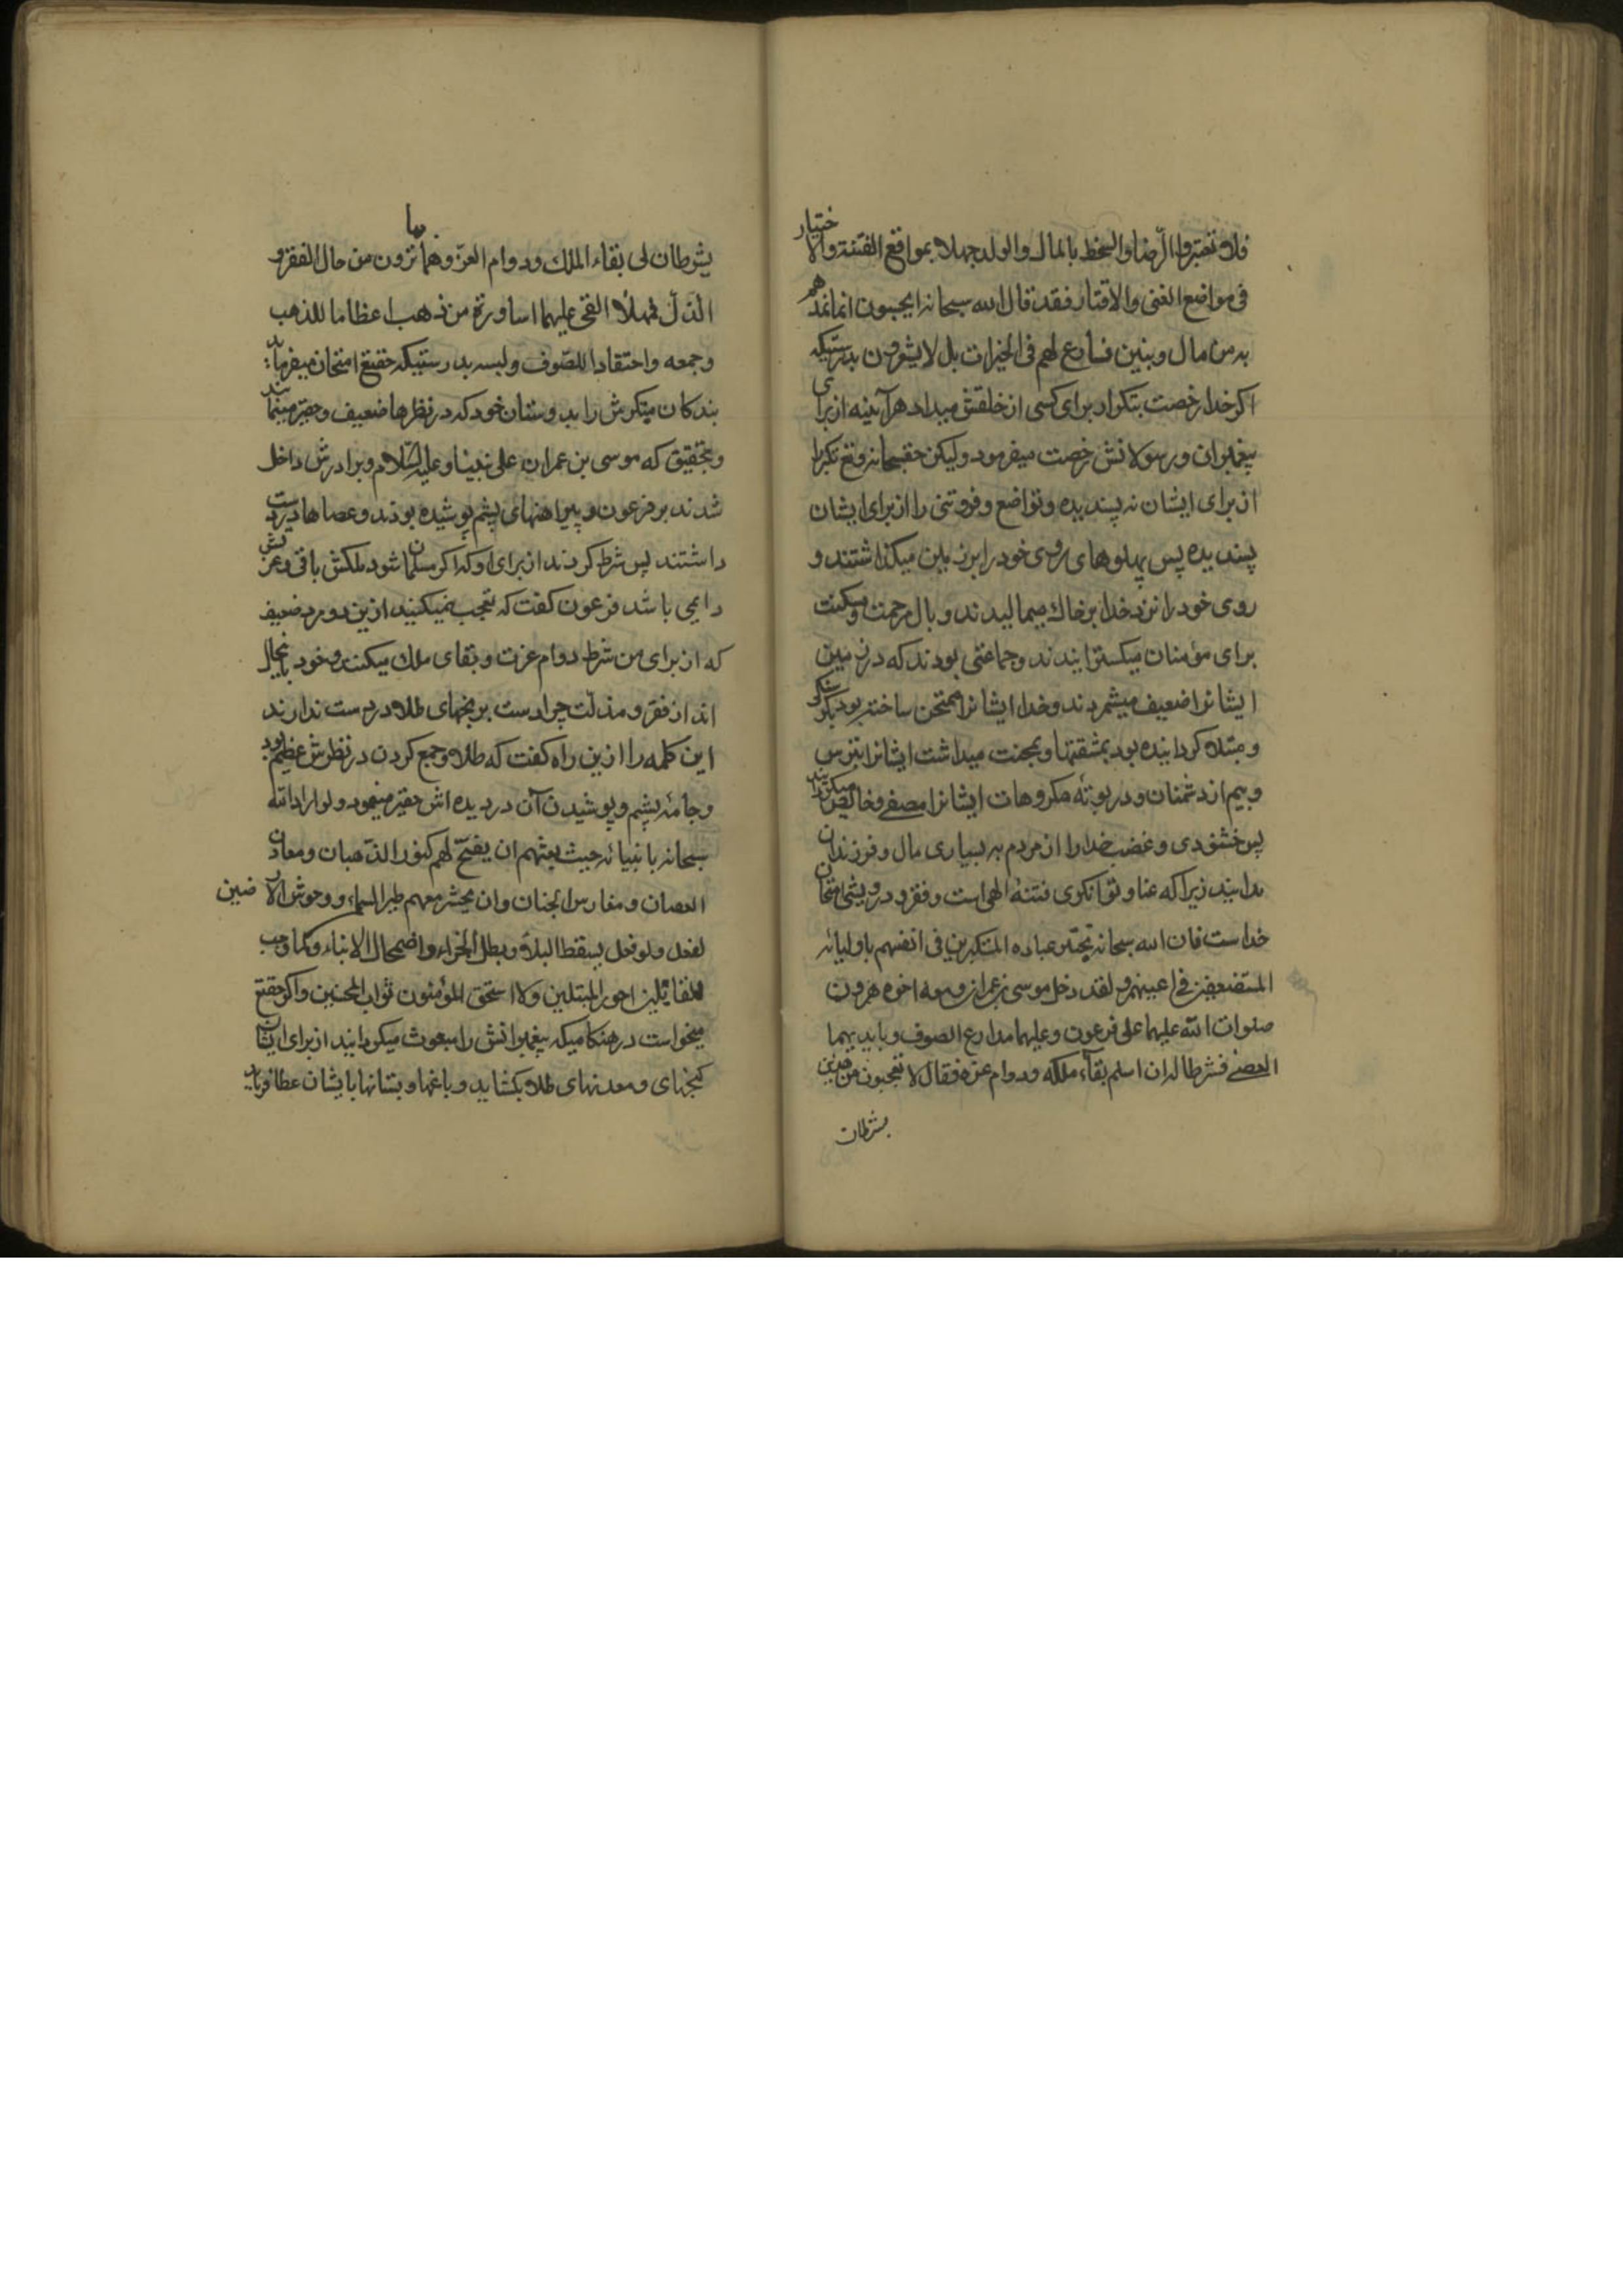 فلا تعتبروا الرّضا والسخط بالمال والولد جهلا بمواقع الفتنة والاختبار
فی مواضع الغنی والاقتار فقد قال الله سبحانه ایحسبون انما نمدهم
به من مال وبنین نسارع لهم فی الخیرات بل لا یشعرون بدرستیکه
اکر خدا رخصت بتکبر از برای کسی از خلقش میداد هرآینه از برای
پیغمبران ورسولانش رخصت میفرمود ولیکن حقسبحانه وتع تکبر را
از برای ایشان نه پسندیده وتواضع وفروتنی را از برای ایشان
پسندیده پس پهلوهای روی خود را بر زمین میکذاشتند و
روی خود را نزد خدا بر خاك میمالیدند وبال مرحمت ومسکنت
برای مؤمنان میکسترانیدند وجماعتی بودند که در زمین
ایشانرا ضعیف میشمردند وخدا ایشانرا ممتحن ساخته بود بکرسنکی
ومبتلا کردانیده بود بمشقتها وبمحنت میداشت ایشانرا بترس
وبیم از دشمنان ودر بوتهٔ مکروهات ایشانرا مصفی وخالص میکردانید
پس خشنودی وغضب خدا را از مردم به بسیاری مال وفرزندان
مدانید زیرا که غنا وتوانکری فتنهٔ الهی است وفقر ودرویشی امتحان
خداست فان الله سبحانه یختبر عباده المتکبرین فی انفسهم باولیائه
المستضعفین فی اعینهم ولقد دخل موسی بن عمران ومعه اخوه هرون
صلوات الله علیهما علی فرعون وعلیهما مدارع الصوف وبایدیهما
العصی فشرطا له ان اسلم بقاء ملکه ودوام عزه فقال الا تعجبون من هذین
یشرطان
یشرطان لی بقاء الملك ودوام العزّ وهما بما ترون من حال الفقر و
الذلّ فهلّا القی علیهما اساورة من ذهب اعظاما للذهب
وجمعه واحتقارا للصّوف ولبسه بدرستیکه حقتع امتحان میفرماید
بندکان متکبرش را بدوستان خود که در نظرها ضعیف وحقیر مینمایند
وبتحقیق که موسی بن عمران علی نبینا وعلیه السّلام وبرادرش داخل
شدند بر فرعون وپیراهنهای پشم پوشیده بودند وعصاها در دست
داشتند پس شرط کردند از برای او که اکر مسلمان شود ملکش باقی وعزتش
دایمی باشد فرعون کفت که تعجب نمیکنید ازین دو مرد ضعیف
که از برای من شرط دوام عزت وبقای ملك میکنند وخود بانحال
اند از فقر ومذلّت چرا دست برنجهای طلا در دست ندارند
این کلمه را ازین راه کفت که طلا وجمع کردن در نظرش عظیم بود
وجامهٔ پشم وپوشیدن آن در دیده اش حقیر مینمود ولو اراد الله
سبحانه بانبیائه حیث بعثهم ان یفتح لهم کنوز الذهبان ومعادن
العصان ومغارس الجنان وان یحشر معهم طیر السماء ووحوش الارضین
لفعل ولو فعل لسقط البلاء وبطل الجزاء واضمحال الانباء ولما وجب
للقائلین اجور المبتلین ولا استحق المؤمنون ثواب المحسنین واکر حقتع
میخواست در هنکامیکه پیغمبرانش را مبعوث میکردانید از برای ایشان
کنجهای ومعدنهای طلا بکشاید وباغها وبستانها بایشان عطا فرماید